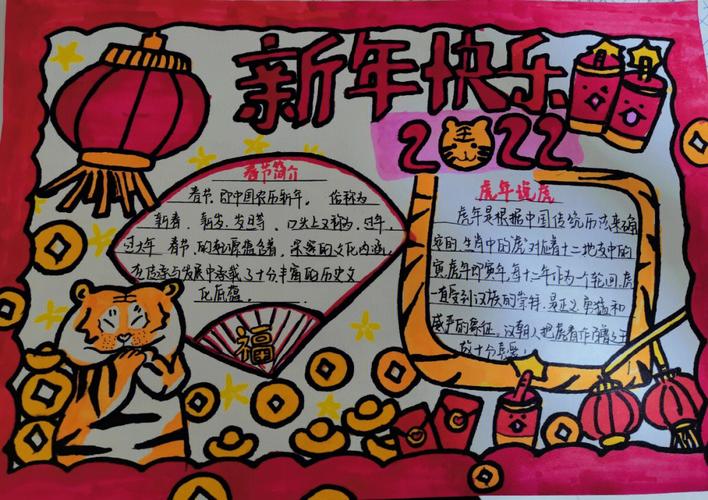 新年快乐
2022
春节简介
春节,即中国农历新年,俗称为
新春、新岁、岁旦等,口头上又称为,过年,
过大年,春节,的起源蕴含着,深邃的文化内涵,
在传承与发展中承载了十分丰富的历史文
化底蕴.
福
虎年说虎
虎年是根据中国传统历法来确
定的,生肖中的虎对应着十二地支中的
寅,虎年即寅年,每十二年作为一个轮回,虎
一直受到汉族的崇拜,是正义、勇猛和
威严的象征,